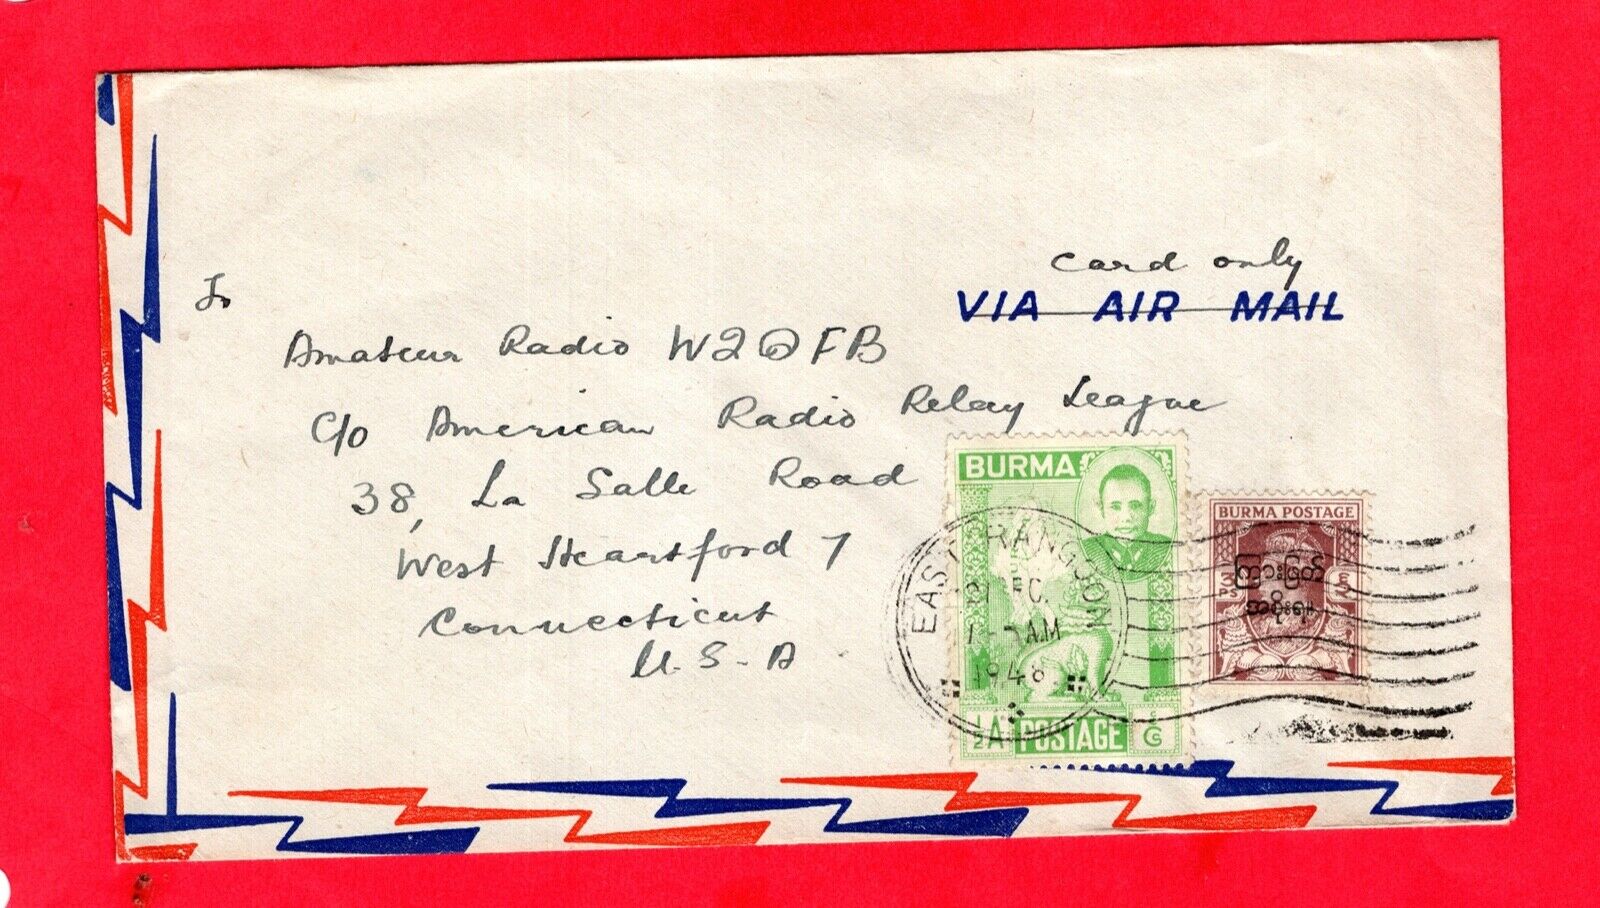 card only
VIA AIR MAIL
To
Amateur Radio W2QFB
C/o American Radio Relay League
38, La Salle Road
West Heartford 7
Connecticut
U.S.A
BURMA
½A POSTAGE
BURMA POSTAGE
3 PS
ကြားဖြတ်
အစိုးရ။
EAST RANGOON
AM
1948